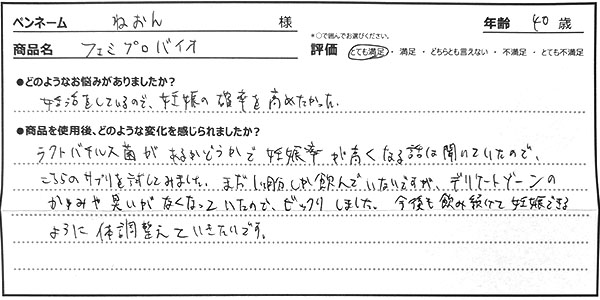 ペンネーム ねおん 様 年齢 40 歳
商品名 フェミプロバイオ
*○で囲んでお選びください。
評価 とても満足 ・ 満足 ・ どちらとも言えない ・ 不満足 ・ とても不満足
●どのようなお悩みがありましたか?
妊活をしているので、妊娠の確率を高めたかった。
●商品を使用後、どのような変化を感じられましたか?
ラクトバチルス菌があるかどうかで妊娠率が高くなる話は聞いていたので、
こちらのサプリを試してみました。まだ1ヶ月分しか飲んでいないですが、デリケートゾーンの
かゆみや臭いがなくなっていたので、ビックリしました。今後も飲み続けて妊娠できる
ように体調整えていきたいです。